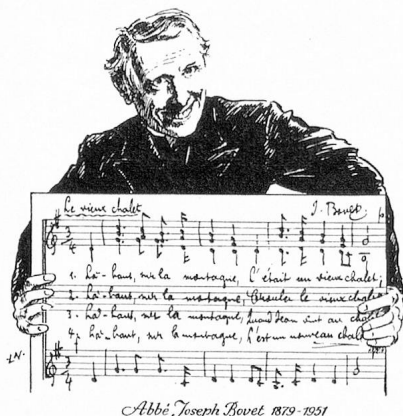 Le vieux chalet
J. Bovet
1. Là-haut, sur la montagne, C'était un vieux chalet;
2. Là-haut, sur la montagne, Croula le vieux chalet
3. Là-haut, sur la montagne, Quand Jean vint au chalet
4. Là-haut, sur la montagne, L'est un nouveau chalet
Abbé Joseph Bovet 1879-1951